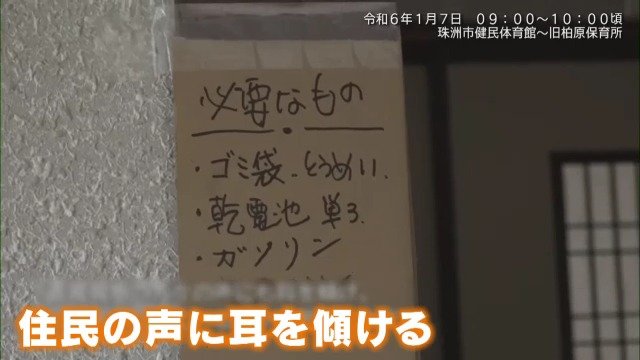 令和6年1月7日 09:00〜10:00頃
珠洲市健民体育館〜旧柏原保育所
必要なもの
・ゴミ袋..とうめい.
・乾電池 単3.
・ガソリン
住民の声に耳を傾ける